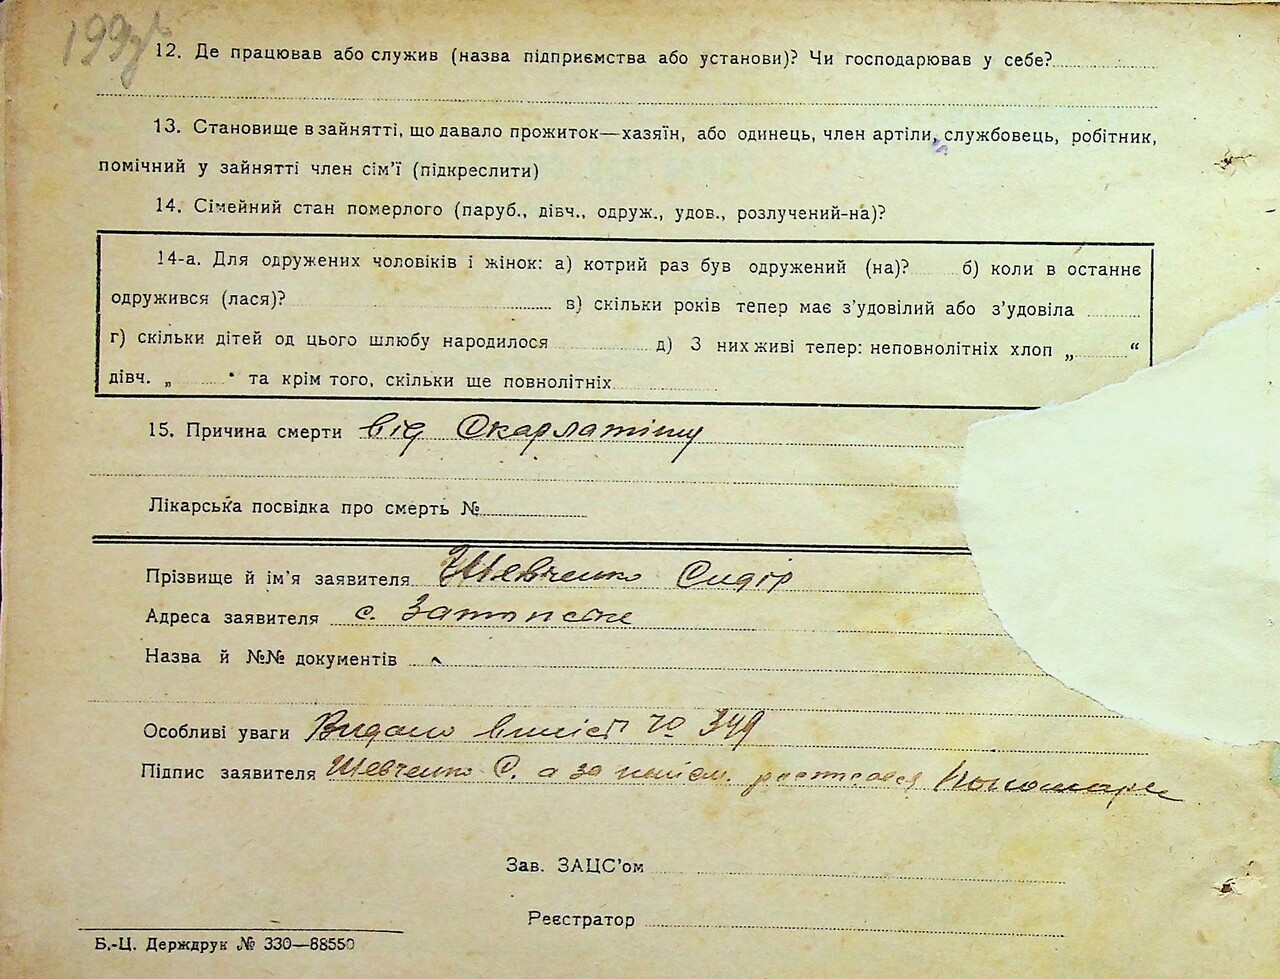 199зв
12. Де працював або служив (назва підприємства або установи)? Чи господарював у себе?
13. Становище в зайнятті, що давало прожиток—хазяїн, або одинець, член артіли, службовець, робітник,
помічний у зайнятті член сім'ї (підкреслити)
14. Сімейний стан померлого (паруб., дівч., одруж., удов., розлучений-на)?
14-а. Для одружених чоловіків і жінок: а) котрий раз був одружений (на)? б) коли в останнє
одружився (лася)? в) скільки років тепер має з'удовілий або з'удовіла
г) скільки дітей од цього шлюбу народилося д) З них живі тепер: неповнолітніх хлоп „ “
дівч. „ “ та крім того, скільки ще повнолітніх
15. Причина смерти від Скарлатіни
Лікарська посвідка про смерть №
Прізвище й ім'я заявителя Шевченко Сидір
Адреса заявителя с.
Назва й №№ документів
Особливі уваги Видано № 349
Підпис заявителя Шевченко С. а за
Зав. ЗАЦС'ом
Реєстратор
Б.-Ц. Держдрук № 330—88550